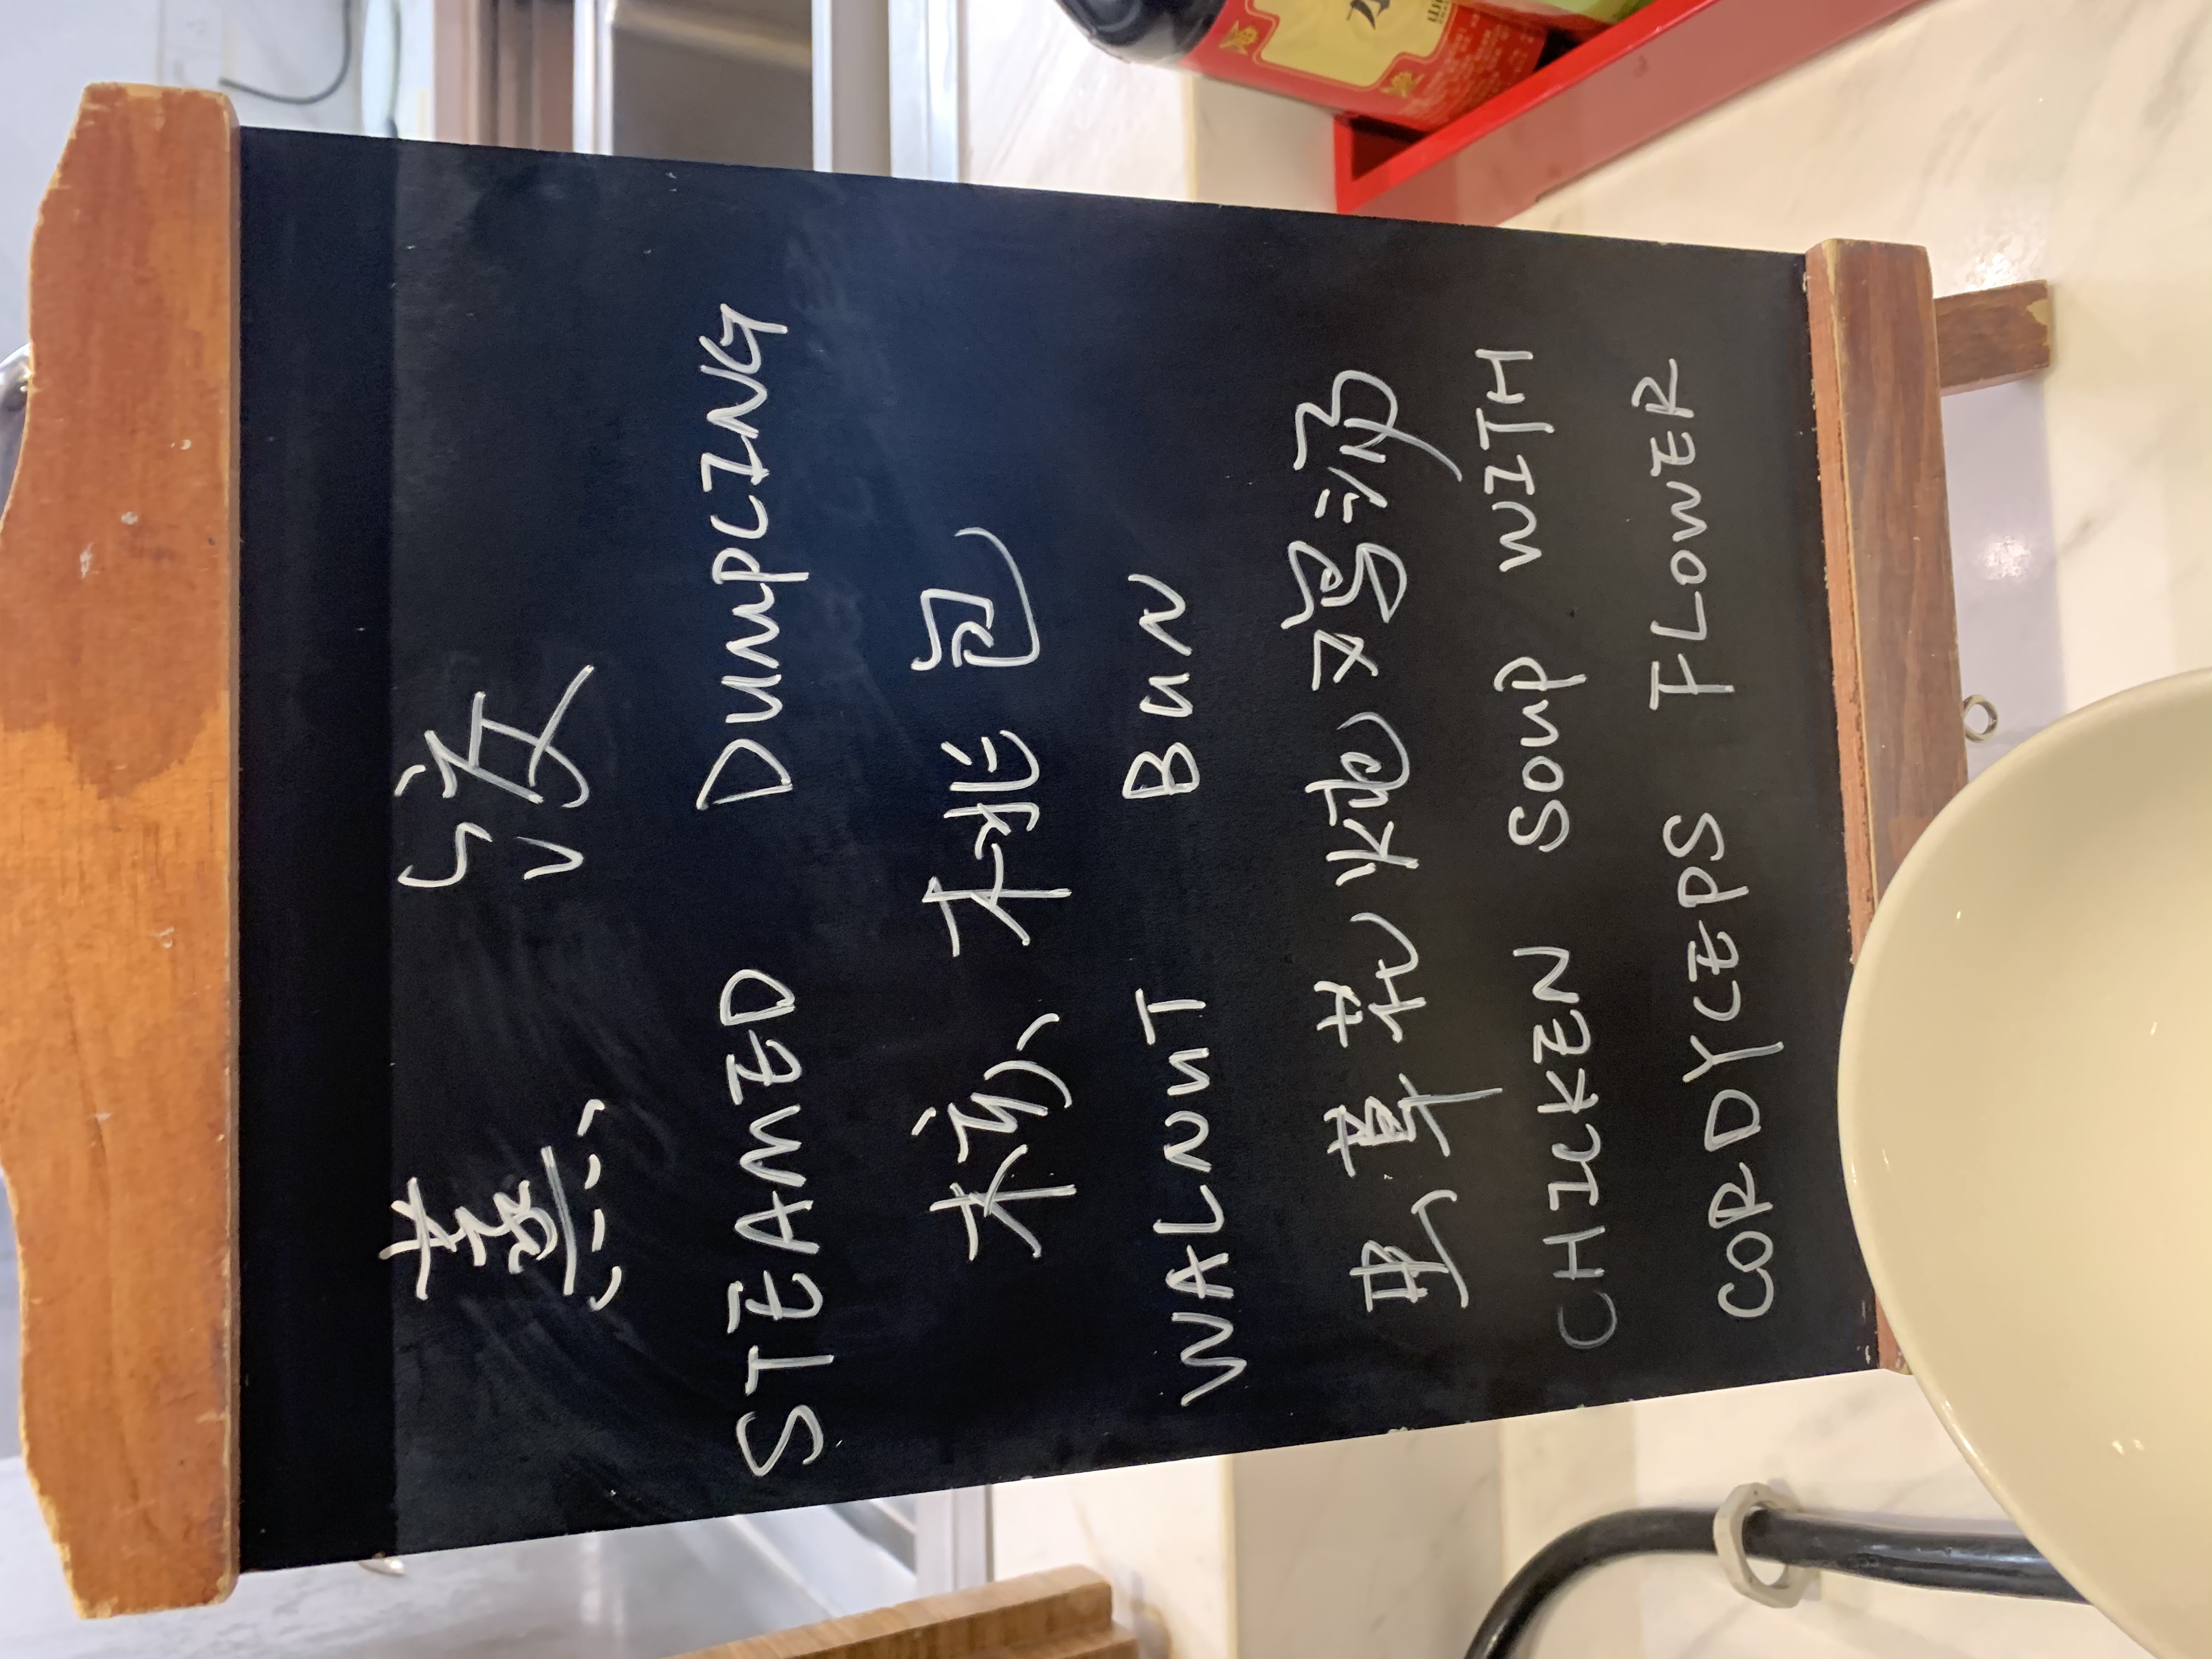 蒸 饺
STEAMED DUMPLING
核桃包
WALNUT BUN
虫草花炖鸡汤
CHICKEN SOUP WITH
CORDYCEPS FLOWER